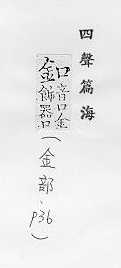 四聲篇海
釦音口金
飾器口
(金部、p36)